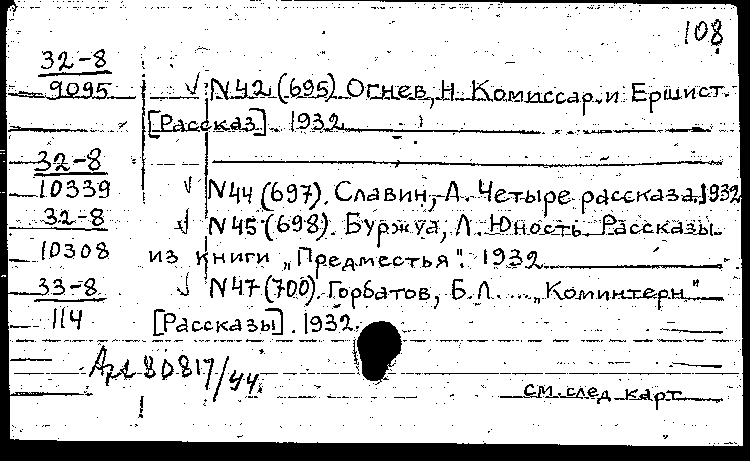 108
32-8
9095 √ N42 (695) Огнев, Н. Комиссар и Ершист.
[Рассказ] 1932
32-8
10339 √ N44 (697). Славин, Л. Четыре рассказа. 1932
32-8 √ N45 (698). Буржуа, Л. Юность. Рассказы
10308 из книги „Предместья". 1932
33-8 √ N47 (700). Горбатов, Б.Л. „Коминтерн"
114 [Рассказы]. 1932.
80817/44
см. след карт